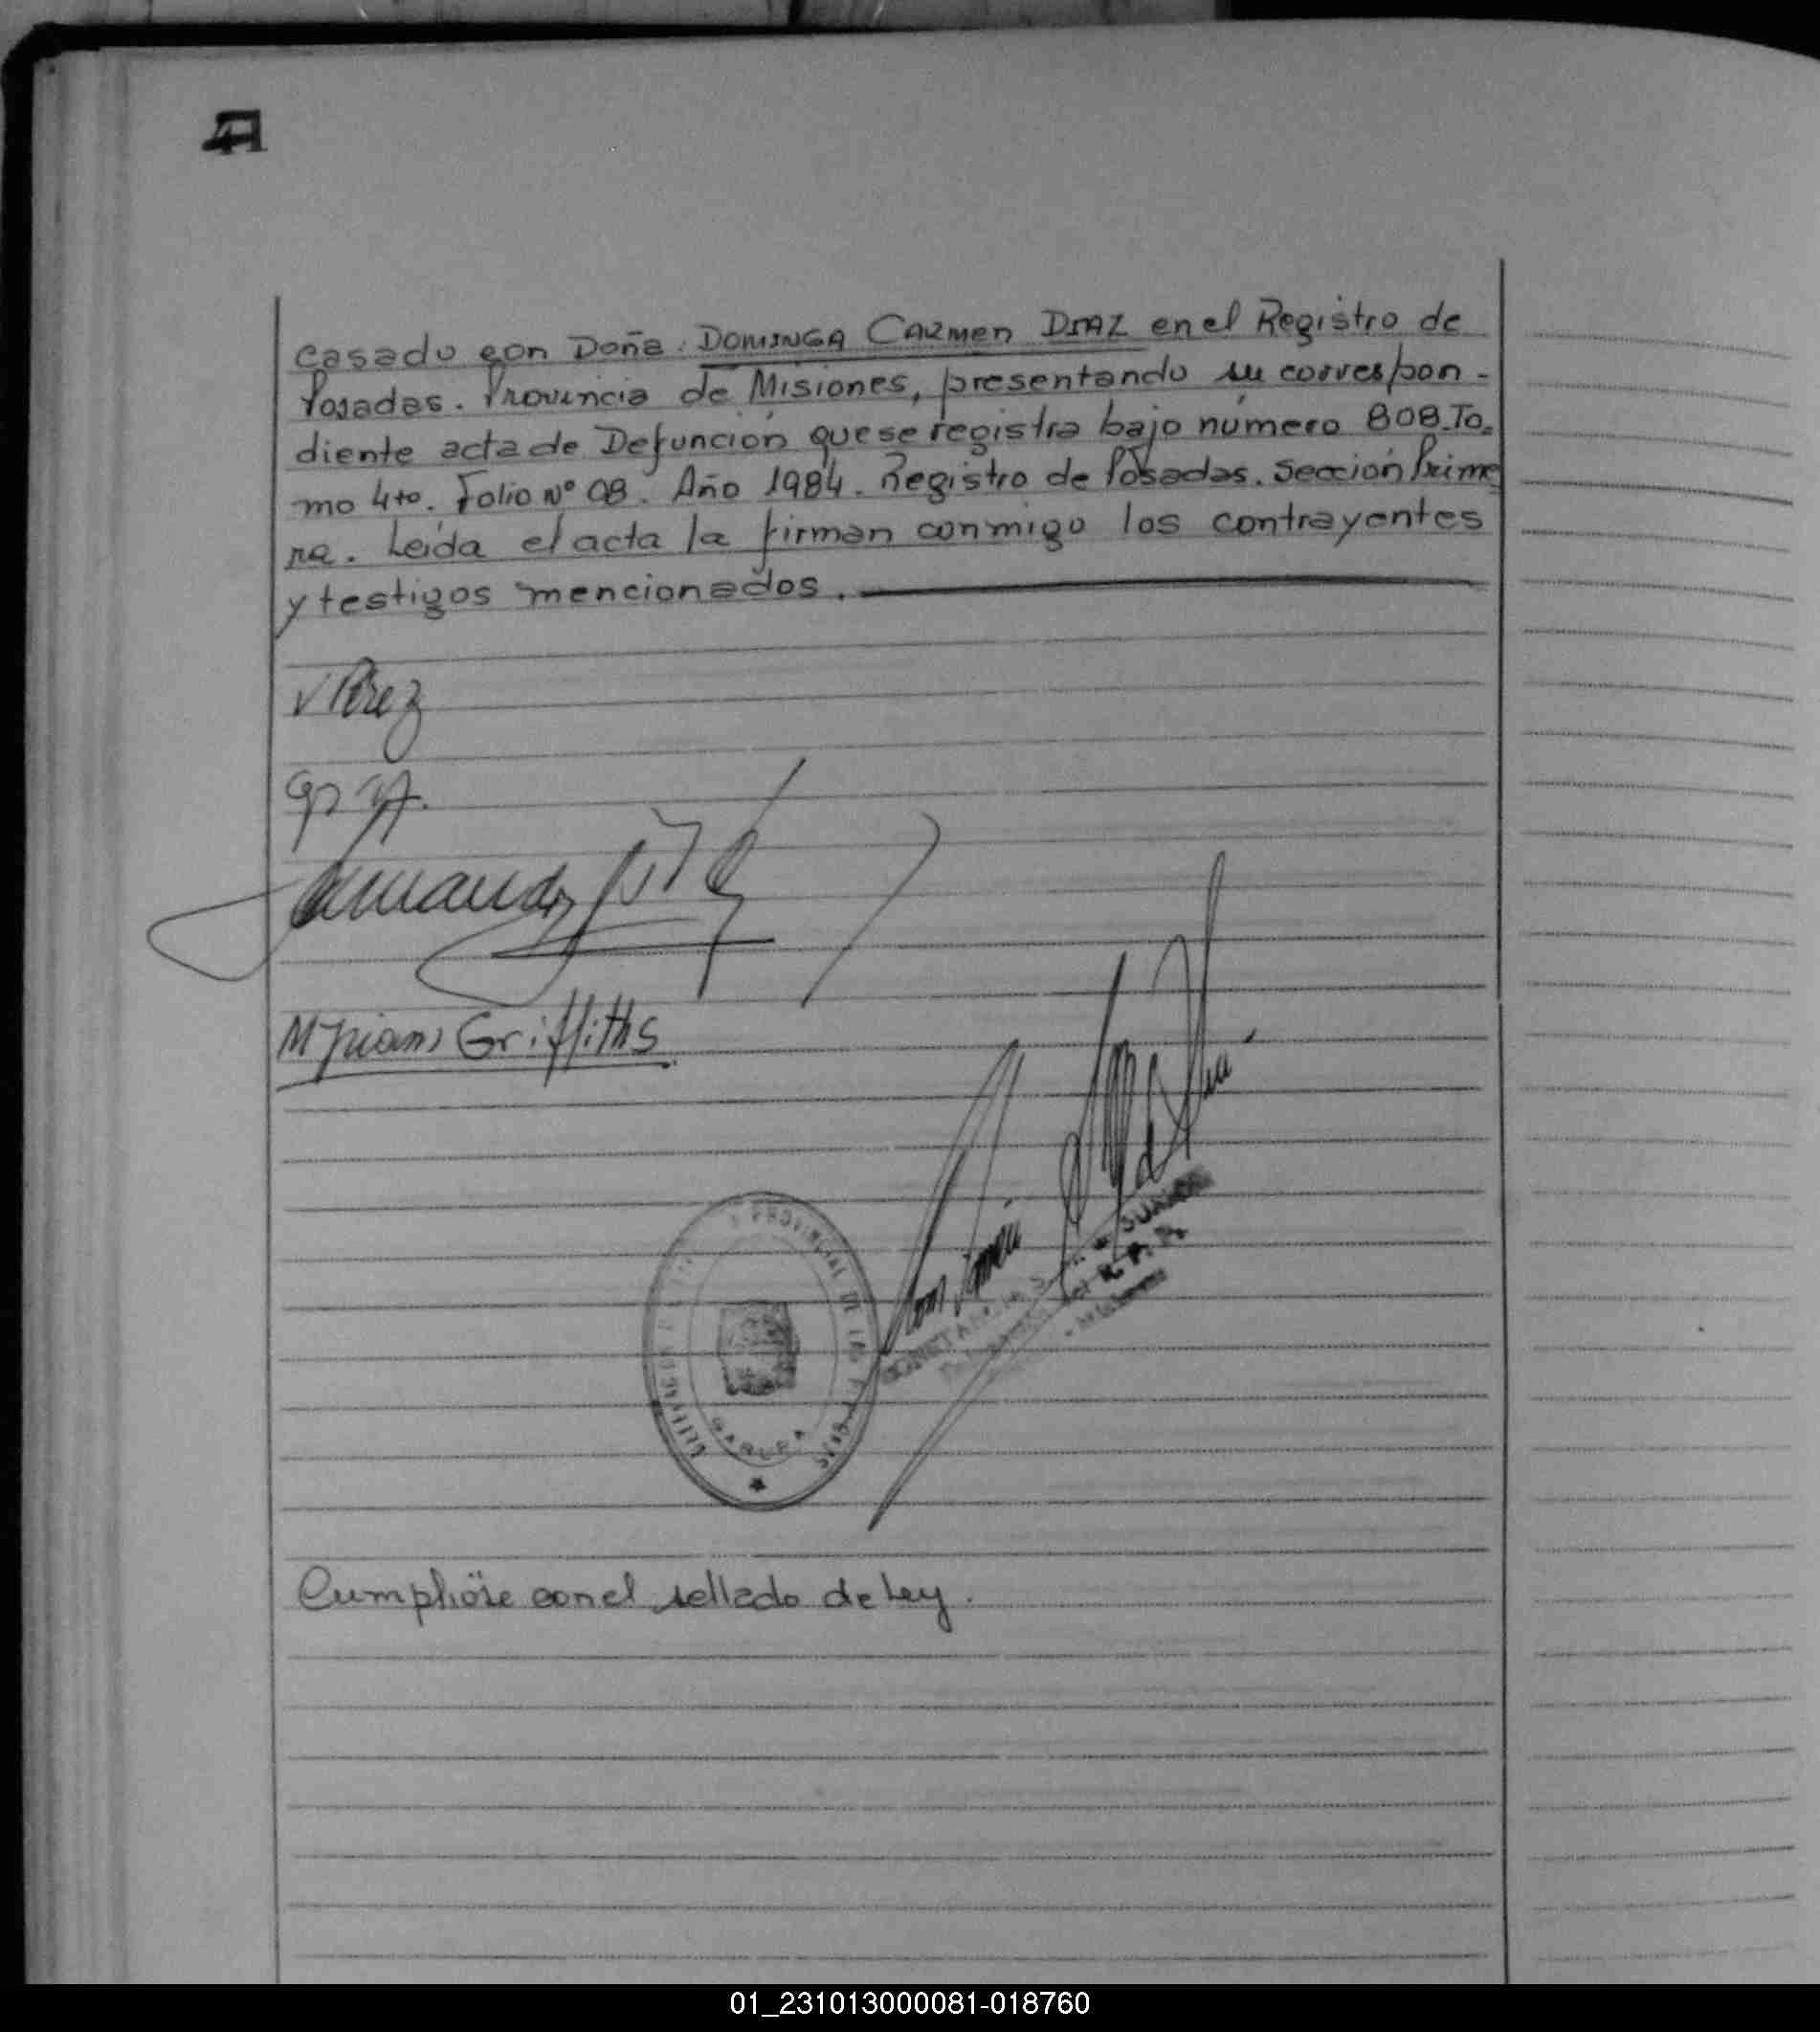 casado con Doña. DOMINGA CARMEN DIAZ en el Registro de
Posadas. Provincia de Misiones, presentando su correspon-
diente acta de Defunción que se registra bajo número 808. To.
mo 4to. Folio Nº 08. Año 1984. Registro de Posadas. Sección Prime
ra. Leída el acta la firman conmigo los contrayentes
y testigos mencionados.
V Perez
Myriam Griffiths
PROVINCIAL DE LAS
Cumplióse con el sellado de Ley.
01_231013000081-018760